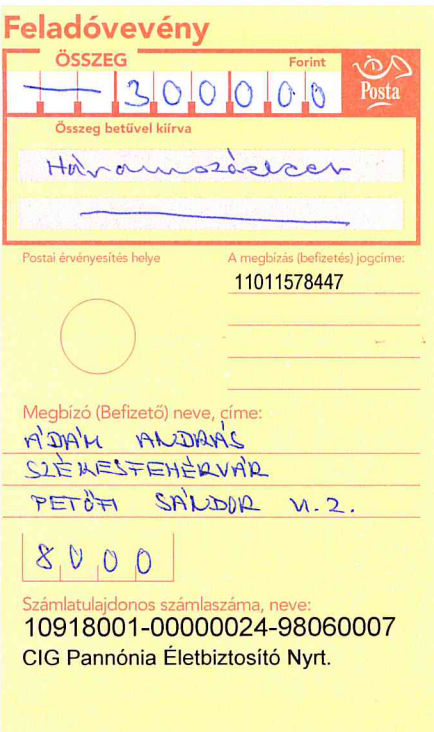 Feladóvevény
ÖSSZEG Forint
— 300000
Posta
Összeg betűvel kiírva
Háromszázezer
Postai érvényesítés helye
A megbízás (befizetés) jogcíme:
11011578447
Megbízó (Befizető) neve, címe:
ÁDÁM ANDRÁS
SZÉKESFEHÉRVÁR
PETŐFI SÁNDOR U.2.
8000
Számlatulajdonos számlaszáma, neve:
10918001-00000024-98060007
CIG Pannónia Életbiztosító Nyrt.